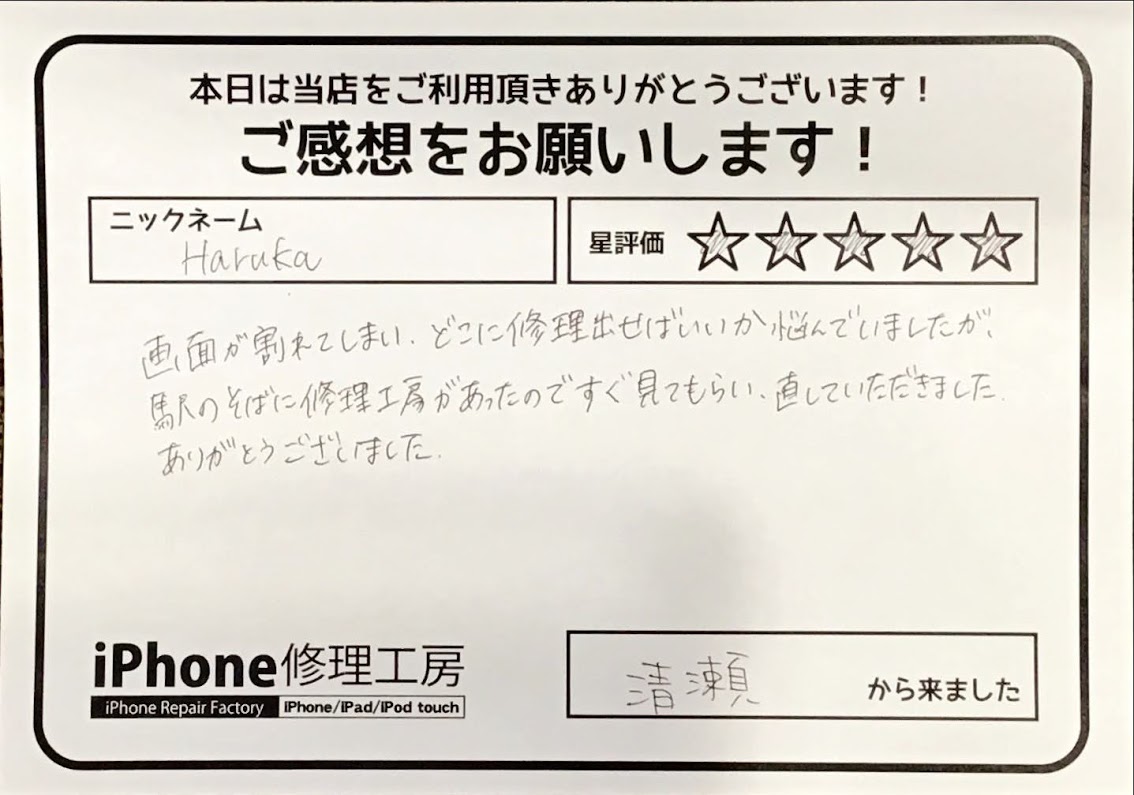 本日は当店をご利用頂きありがとうございます！
ご感想をお願いします！
ニックネーム
Haruka
星評価
画面が割れてしまい、どこに修理出せばいいか悩んでいましたが、
駅のそばに修理工房があったのですぐ見てもらい、直していただきました。
ありがとうございました。
iPhone修理工房
iPhone Repair Factory iPhone/iPad/iPod touch
清瀬 から来ました